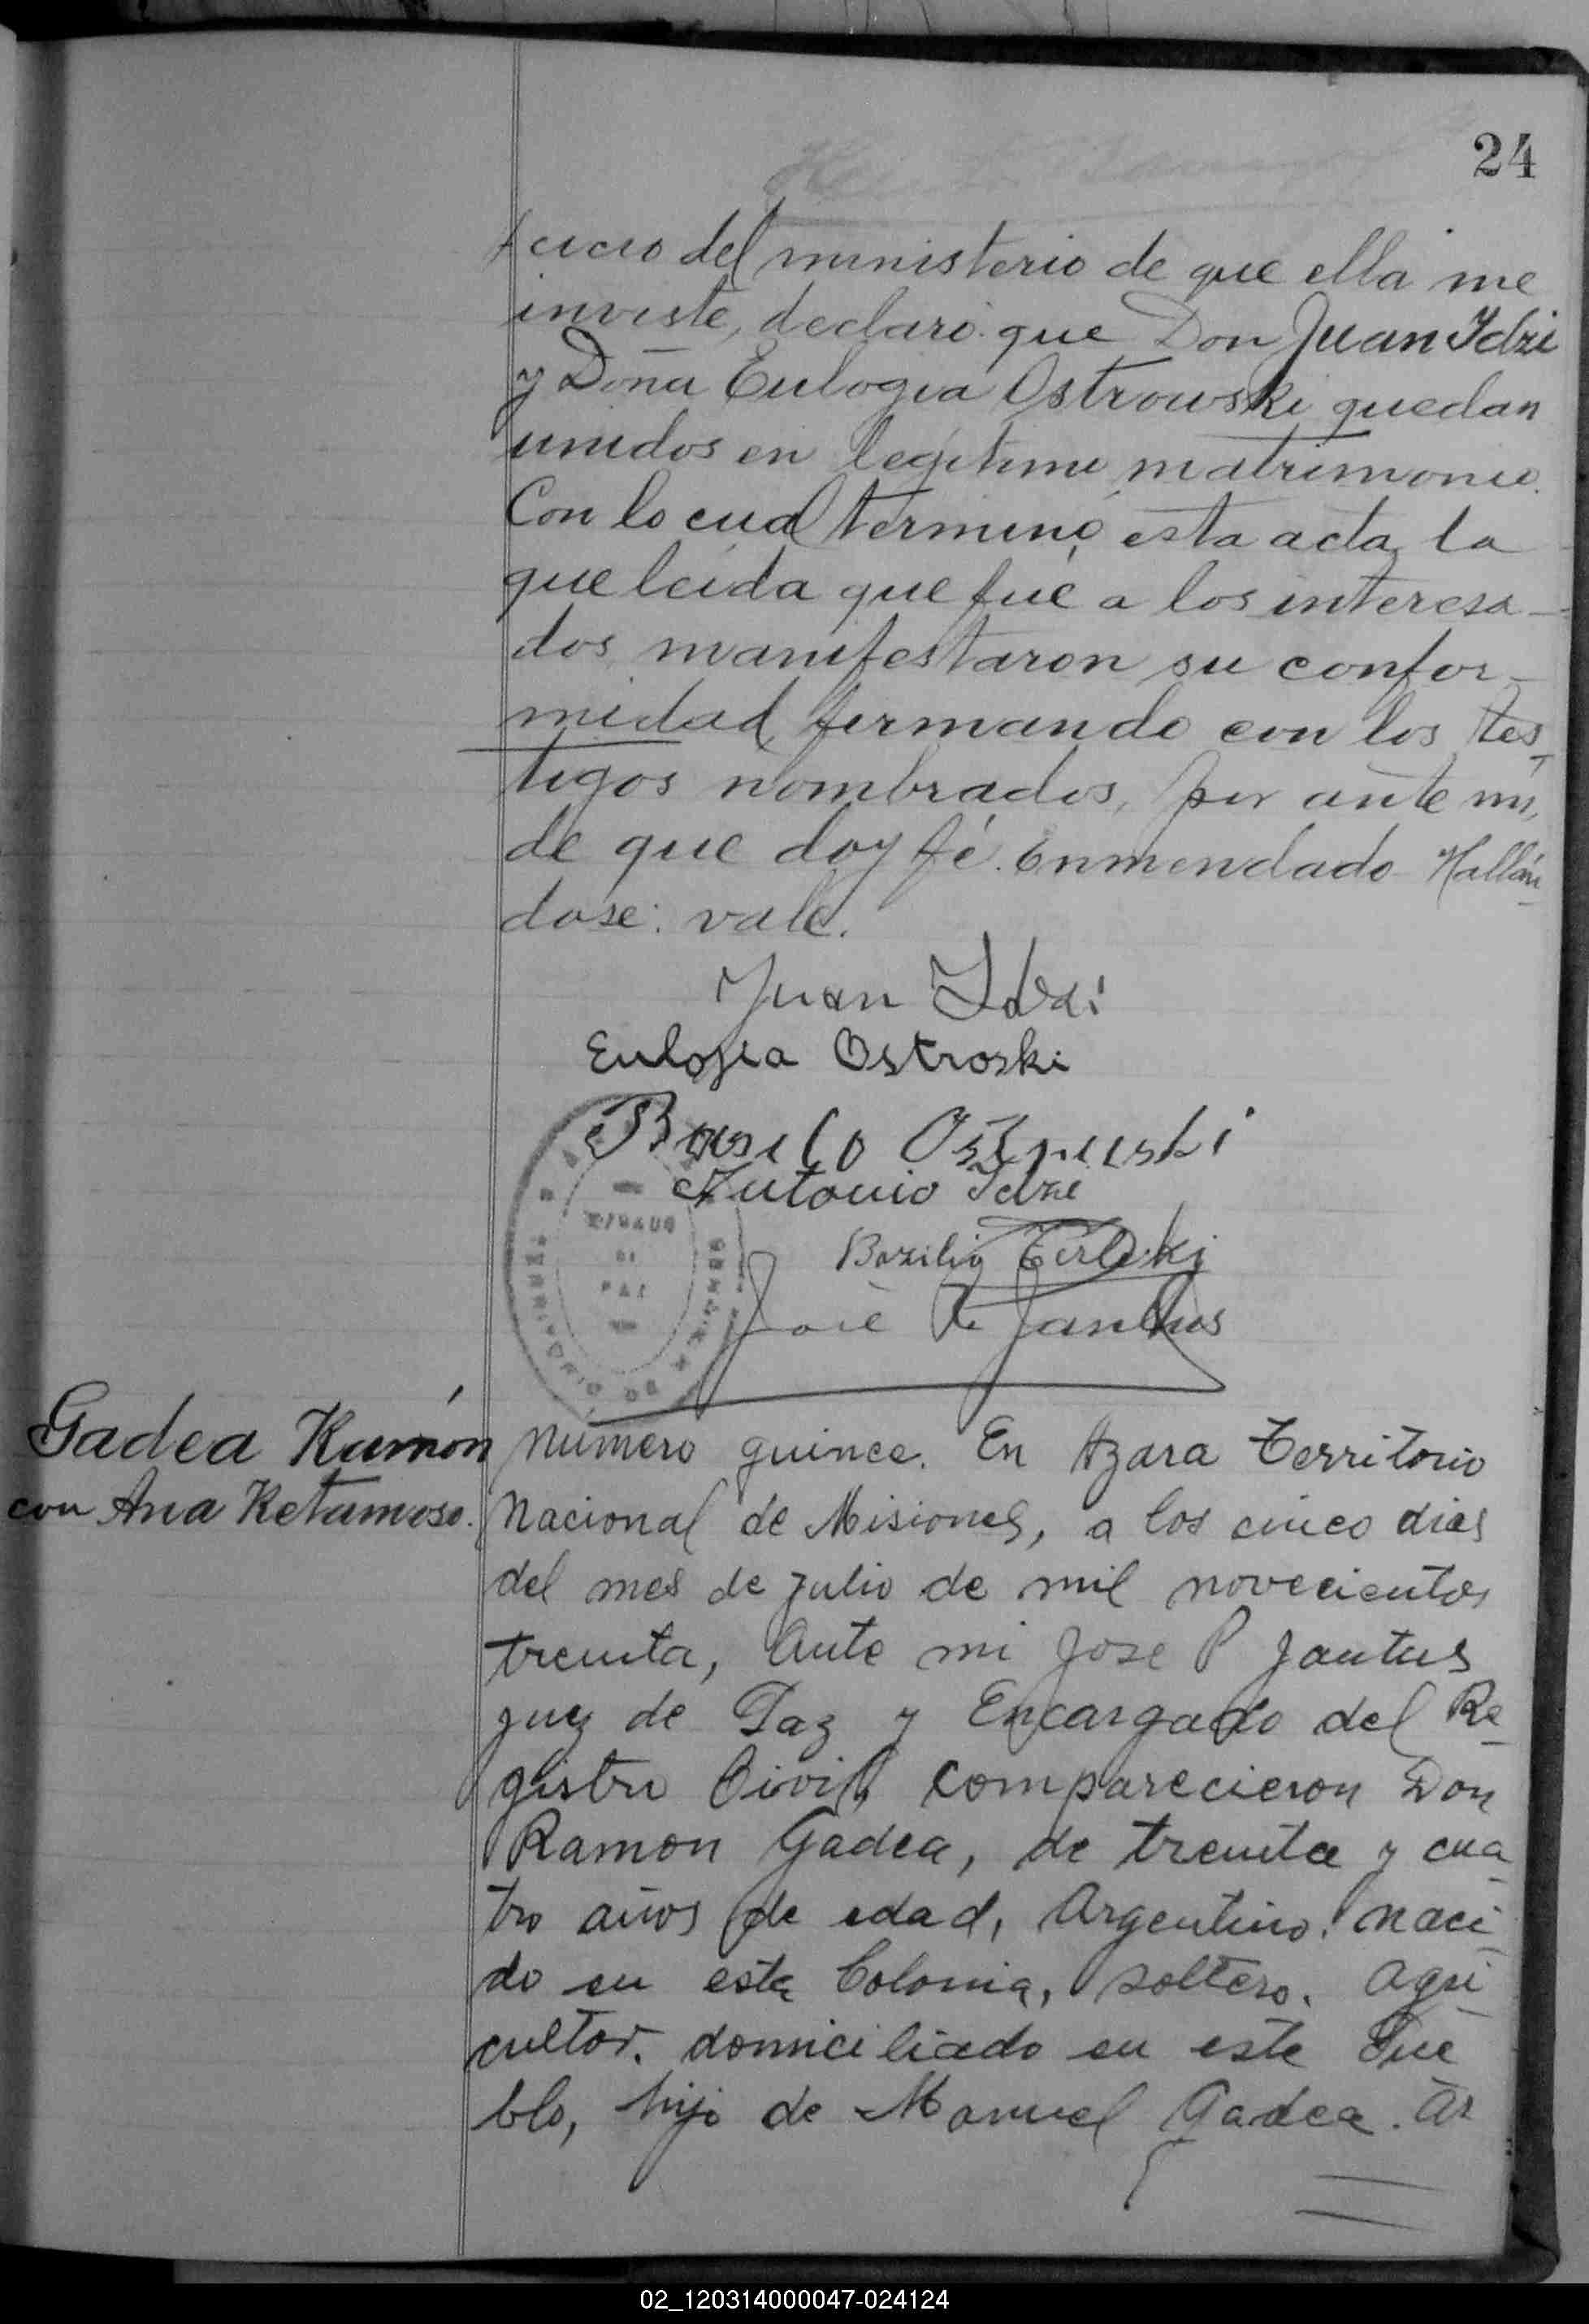 24
cicio del ministerio de que ella me
inviste, declaro que Don Juan Idzi
y Doña Eulogia Ostrowski quedan
unidos en legítimo matrimonio.
Con lo cual terminó esta acta, la
que leída que fué a los interesa-
dos manifestaron su confor-
midad, firmando con los tes-
tigos nombrados, por ante mí,
de que doy fé. Enmendado Hallán-
dose: vale.
Juan Idzi
Eulogia Ostroski
Basilo
Antonio Idzi
Bazilio
José P. Jantus
Gadea Ramón
con Ana Retamoso.
Número quince. En Azara Territorio
Nacional de Misiones, a los cinco dias
del mes de julio de mil novecientos
treinta, Ante mi Jose P Jantus
juez de Paz y Encargado del Re-
gistro Civil, comparecieron Don
Ramon Gadea, de treinta y cua-
tro años de edad, Argentino, naci-
do en esta Colonia, soltero, agri-
cultor, domiciliado en este Pue-
blo, hijo de Manuel Gadea. Ar
02_120314000047-024124